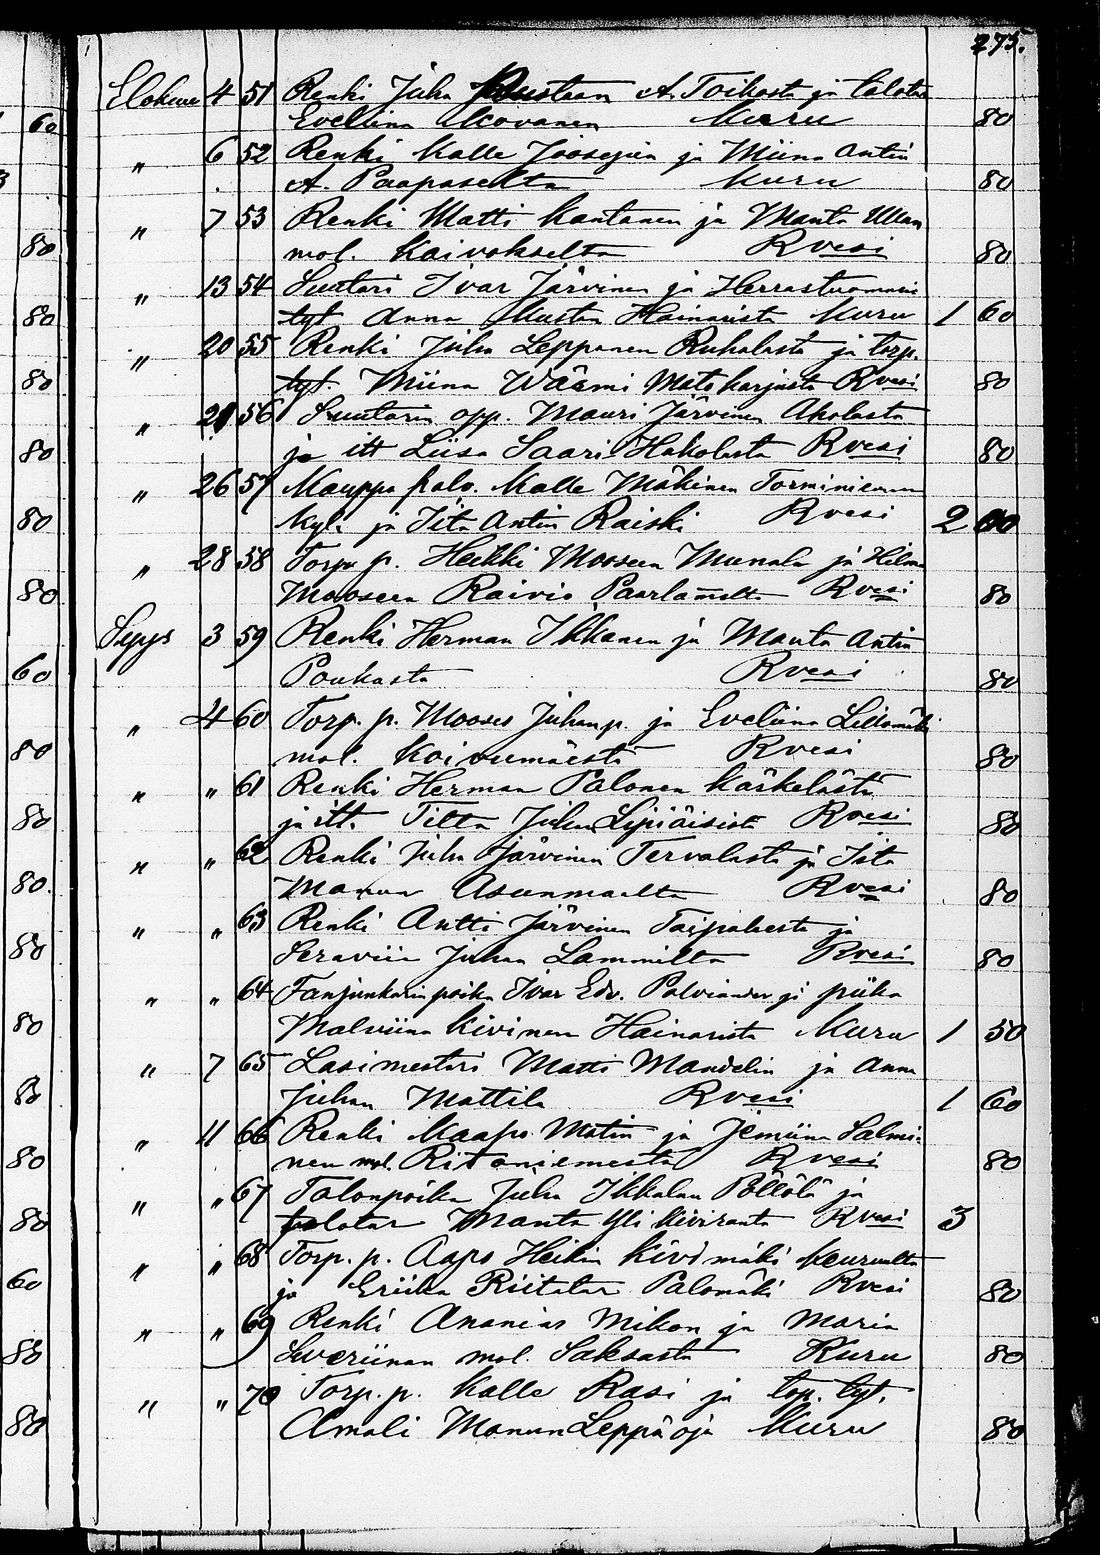 275.
60
Elokuu 4 51 Renki Juha A. Toikosta ja talotar
Eveliina Kovanen Kuru 80
" 6 52 Renki Kalle Joosepin ja Miina Antin
A. Paapaselta Kuru 80
" 7 53 Renki Matti Kantanen ja Manta Ullan
80 mol. Kaivokselta Rvesi 80
" 13 54 Suutari Ivar Järvinen ja Herrastuomarin
80 tyt. Anna Hainarista Kuru 1 60
" 20 55 Renki Juha Leppänen Ruhalasta ja torp.
80 tyt. Miina Wärmi Rvesi 80
" 21 56 Suutarin opp. Mauri Järvinen Aholasta
80 ja itt Liisa Saari Hakolasta Rvesi 80
" 26 57 Kauppa palv. Kalle Mäkinen Torminiemen
80 kyl. ja Ita Antin Raiski Rvesi 2 00
" 28 58 Torp. p. Heikki Moosen Munala ja Hilma
80 Moosen Raivio Rvesi 80
Syys 3 59 Renki Herman Ikkanen ja Manta Antin
60 Poukasta Rvesi 80
" 4 60 Torp. p. Mooses Juhanp. ja Eveliina
80 mol. Koivumäestä Rvesi 80
" " 61 Renki Herman Palonen Kärkelästä
80 ja itt. Tilta Juhan Rvesi 80
" " 62 Renki Juha Järvinen Tervalasta ja Ita
80. Manun Asunmaalta Rvesi 80
" " 63 Renki Antti Järvinen Tarjalasta ja
80 Seraviia Juhan Lammilta Rvesi 80
" " 64 Fanjunkarin poika Ivar Edv. ja piika
80 Malviina Kivinen Hainarista Kuru 1 50
" 7 65 Lasimestari Matti Mandelin ja Anna
80 Juhan Mattila Rvesi 1 60
" 11 66 Renki Kaapo Matin ja Jemiina Salmi-
80 nen mol. Ritoniemestä Rvesi 80
" " 67 Talonpoika Juha Ikkalan Pöllölä ja
80 talotar Manta Yli Kiviranta Rvesi 3
" " 68 Torp. p. Aapo Heikin Kivimäki Keuruulta
60 ja Eriika Riitatar Palomäki Rvesi 80
" " 69 Renki Ananias Mikon ja Maria
80 Severiinan mol. Saksasta Kuru 80
" " 70 Torp. p. Kalle Rasi ja top. tyt.
80 Amali Manun Leppäoja Kuru 80